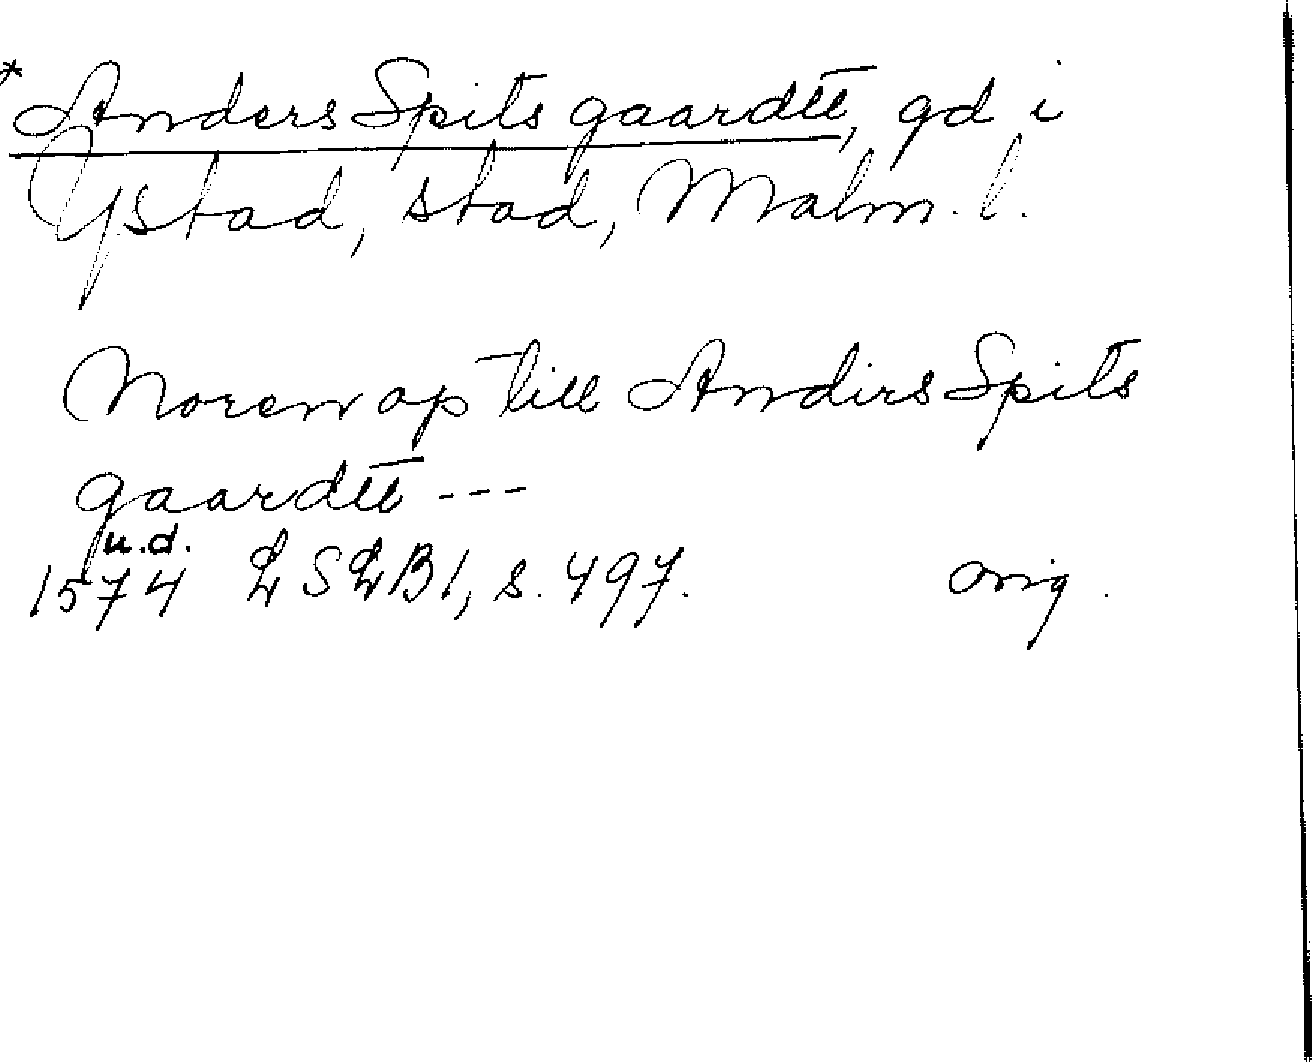 * Anders Spits gaardtt, gd i
Ystad, stad, Malm. l.
Noren op till Anders Spits
gaardtt ---
u.d.
1574 LSLB1, s. 497. orig.